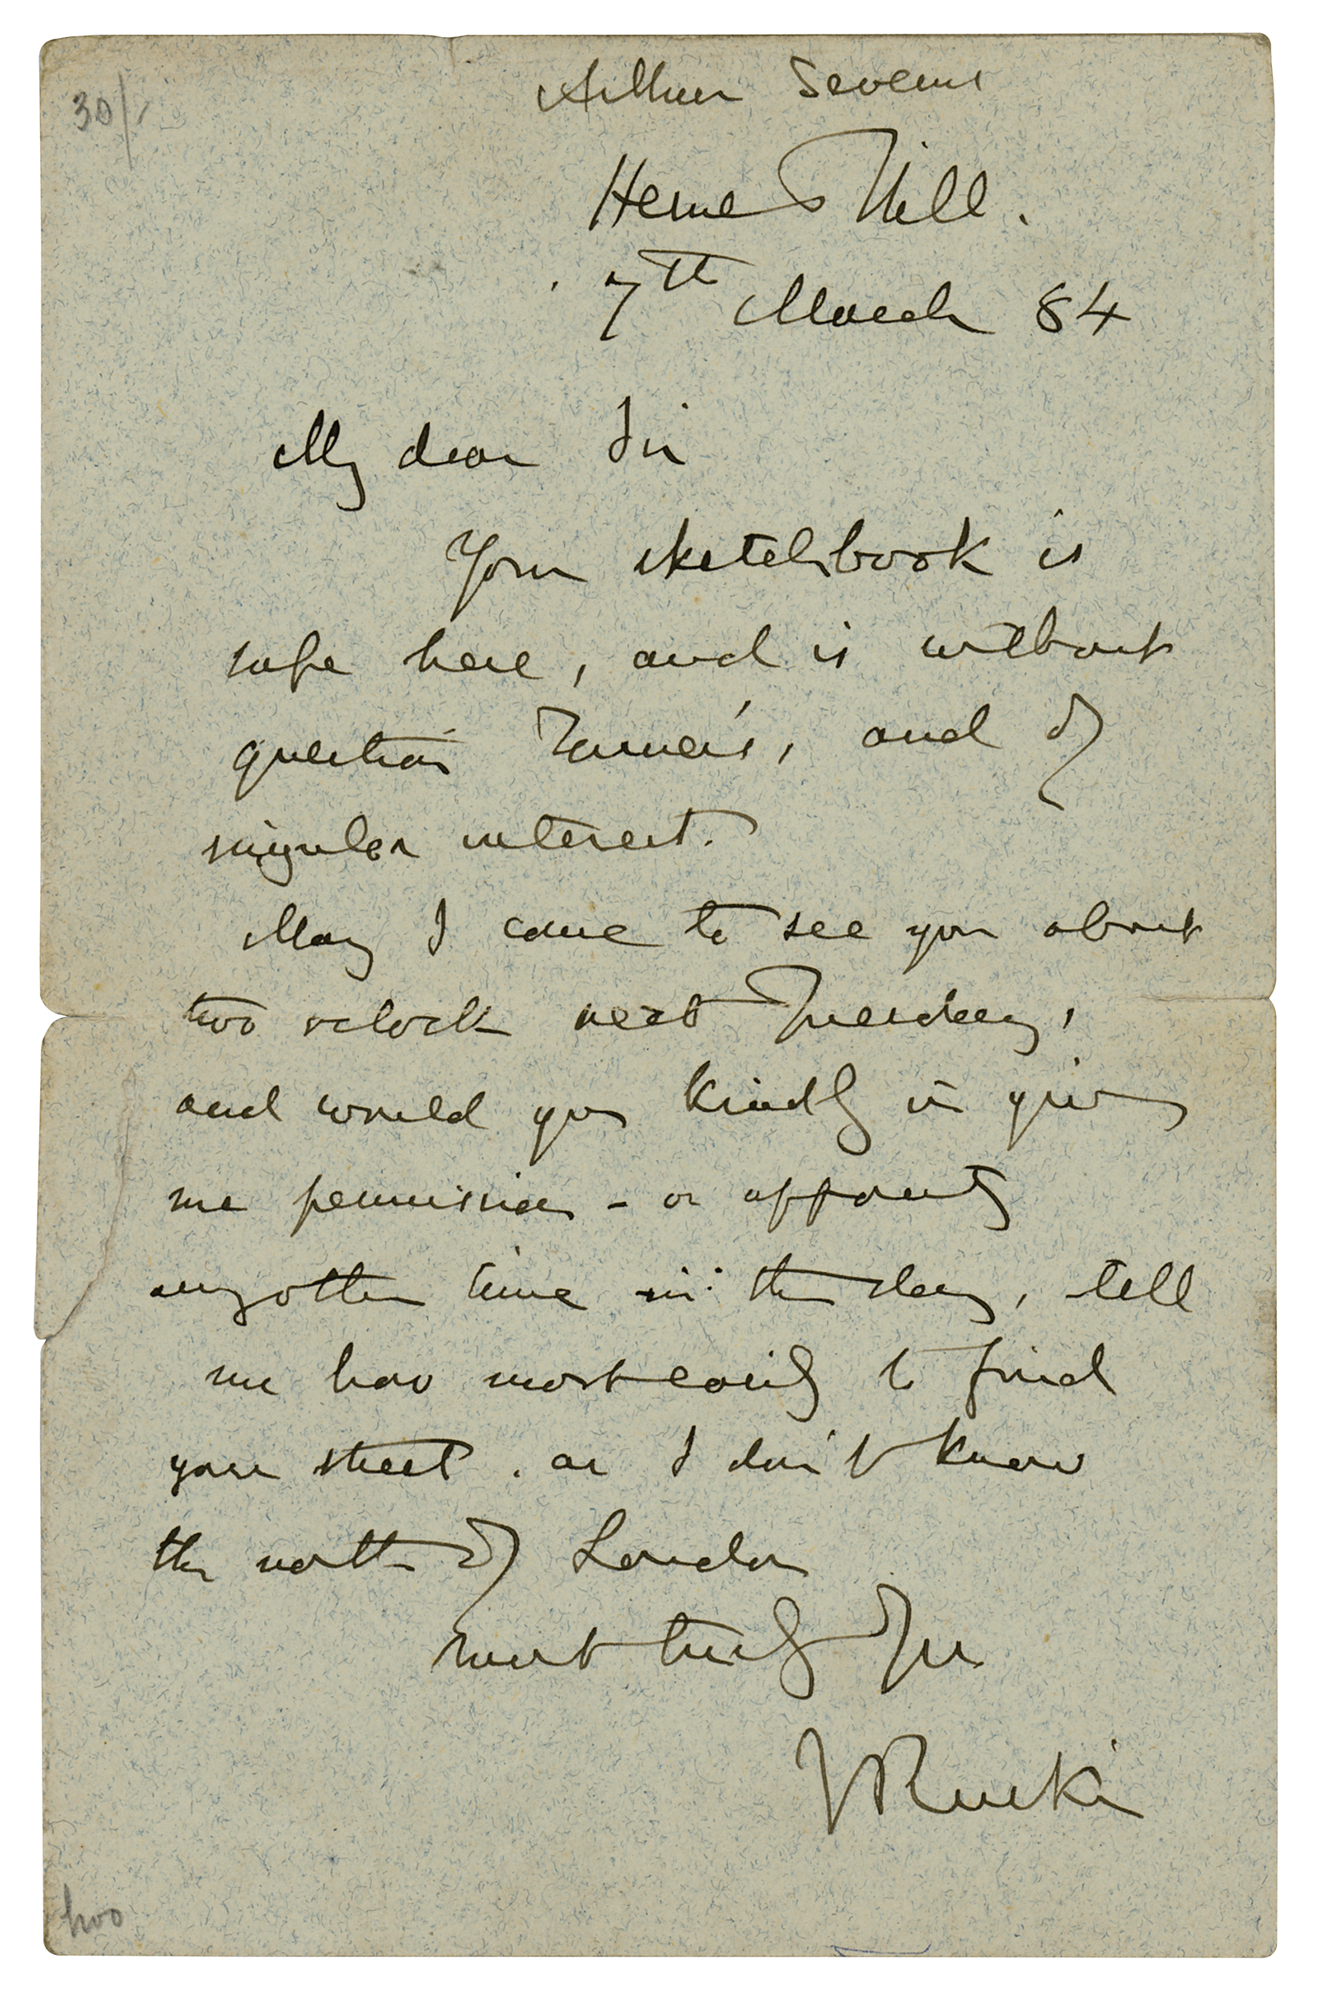 30/-
Arthur Severns
Herne Hill.
7th March 84
My dear Sir
Your sketchbook is
safe here, and is without
question Turner's, and of
singular interest.
May I come to see you about
two oclock next Tuesday,
and would you kindly in giving
me permission - or appointing
any other time in the day, tell
me how most easily to find
your street. as I don't know
the north of London
most truly Yrs
JRuskin